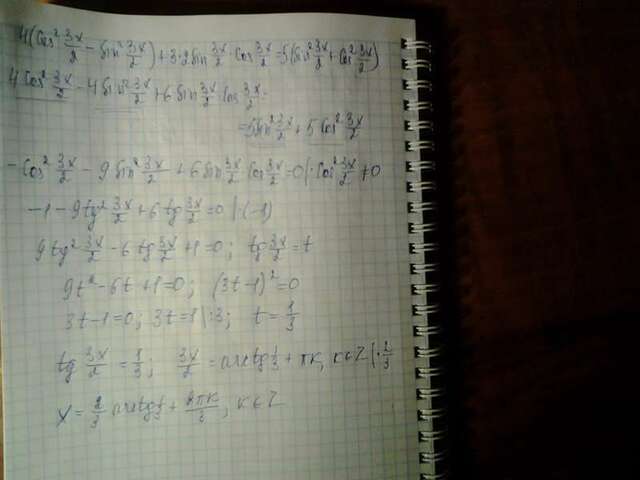 4(cos² 3x/2 - sin² 3x/2) + 3·2sin 3x/2 · cos 3x/2 = 5(sin² 3x/2 + cos² 3x/2)
4cos² 3x/2 - 4sin² 3x/2 + 6sin 3x/2 cos 3x/2 =
= 5sin² 3x/2 + 5cos² 3x/2
-cos² 3x/2 - 9sin² 3x/2 + 6sin 3x/2 cos 3x/2 = 0 |: cos² 3x/2 ≠ 0
-1 - 9tg² 3x/2 + 6tg 3x/2 = 0 |·(-1)
9tg² 3x/2 - 6tg 3x/2 + 1 = 0; tg 3x/2 = t
9t² - 6t + 1 = 0; (3t-1)² = 0
3t - 1 = 0; 3t = 1 |:3; t = 1/3
tg 3x/2 = 1/3; 3x/2 = arctg 1/3 + πk, k∈Z |· 2/3
x = 2/3 arctg 1/3 + 2πk/3, k∈Z